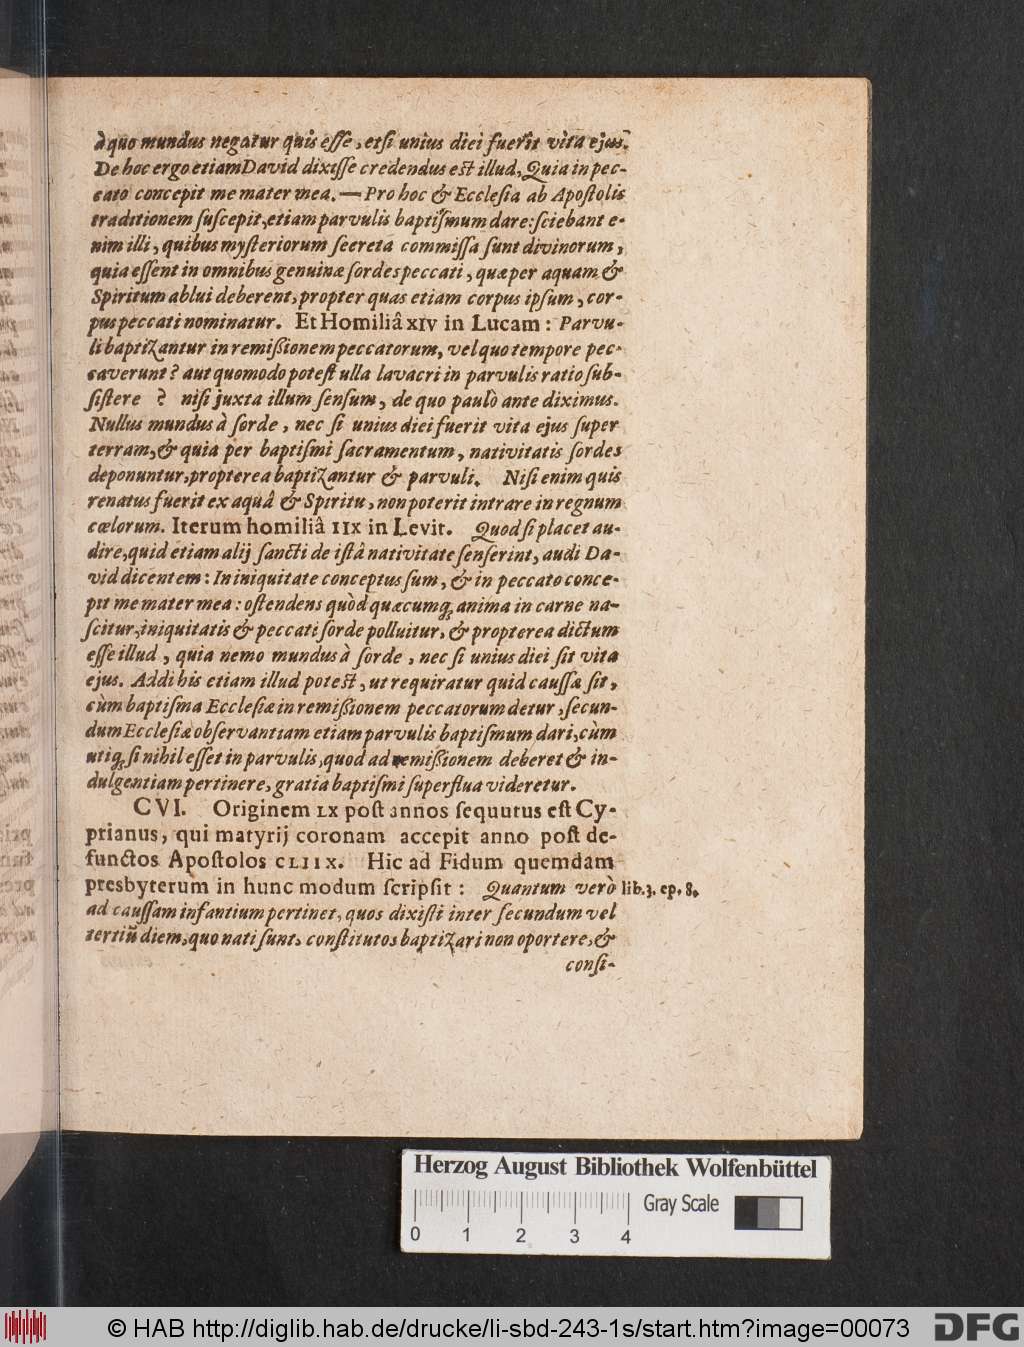 à quo mundus negatur quis esse, etsi unius diei fuerit vita ejus.
De hoc ergo etiam David dixisse credendus est illud, Quia in pec-
cato concepit me mater mea. — Pro hoc & Ecclesia ab Apostolis
traditionem suscepit, etiam parvulis baptismum dare: sciebant e-
nim illi, quibus mysteriorum secreta commissa sunt divinorum,
quia essent in omnibus genuinæ sordes peccati, quæ per aquam &
Spiritum ablui deberent, propter quas etiam corpus ipsum, cor-
pus peccati nominatur. Et Homiliâ XIV in Lucam: Parvu-
li baptizantur in remißionem peccatorum, vel quo tempore pec-
caverunt? aut quomodo potest ulla lavacri in parvulis ratio sub-
sistere ? nisi juxta illum sensum, de quo paulò ante diximus.
Nullus mundus à sorde, nec si unius diei fuerit vita ejus super
terram, & quia per baptismi sacramentum, nativitatis sordes
deponuntur, propterea baptizantur & parvuli. Nisi enim quis
renatus fuerit ex aquâ & Spiritu, non poterit intrare in regnum
cœlorum. Iterum homiliâ IIX in Levit. Quod si placet au-
dire, quid etiam alij sancti de istâ nativitate senserint, audi Da-
vid dicentem: In iniquitate conceptus sum, & in peccato conce-
pit me mater mea: ostendens quòd quæcumq; anima in carne na-
scitur, iniquitatis & peccati sorde polluitur, & propterea dictum
esse illud, quia nemo mundus à sorde, nec si unius diei sit vita
ejus. Addi his etiam illud potest, ut requiratur quid caussæ sit,
cùm baptisma Ecclesiæ in remißionem peccatorum detur, secun-
dum Ecclesiæ observantiam etiam parvulis baptismum dari, cùm
utiq; si nihil esset in parvulis, quod ad remißionem deberet & in-
dulgentiam pertinere, gratia baptismi superflua videretur.
CVI. Originem LX post annos sequutus est Cy-
prianus, qui matyrij coronam accepit anno post de-
functos Apostolos CLIIX. Hic ad Fidum quemdam
presbyterum in hunc modum scripsit: Quantum verò lib. 3. ep. 8.
ad caussam infantium pertinet, quos dixisti inter secundum vel
tertiũ diem, quo nati sunt, constitutos baptizari non oportere, &
consi-
Herzog August Bibliothek Wolfenbüttel
Gray Scale
0 1 2 3 4
© HAB http://diglib.hab.de/drucke/li-sbd-243-1s/start.htm?image=00073 DFG